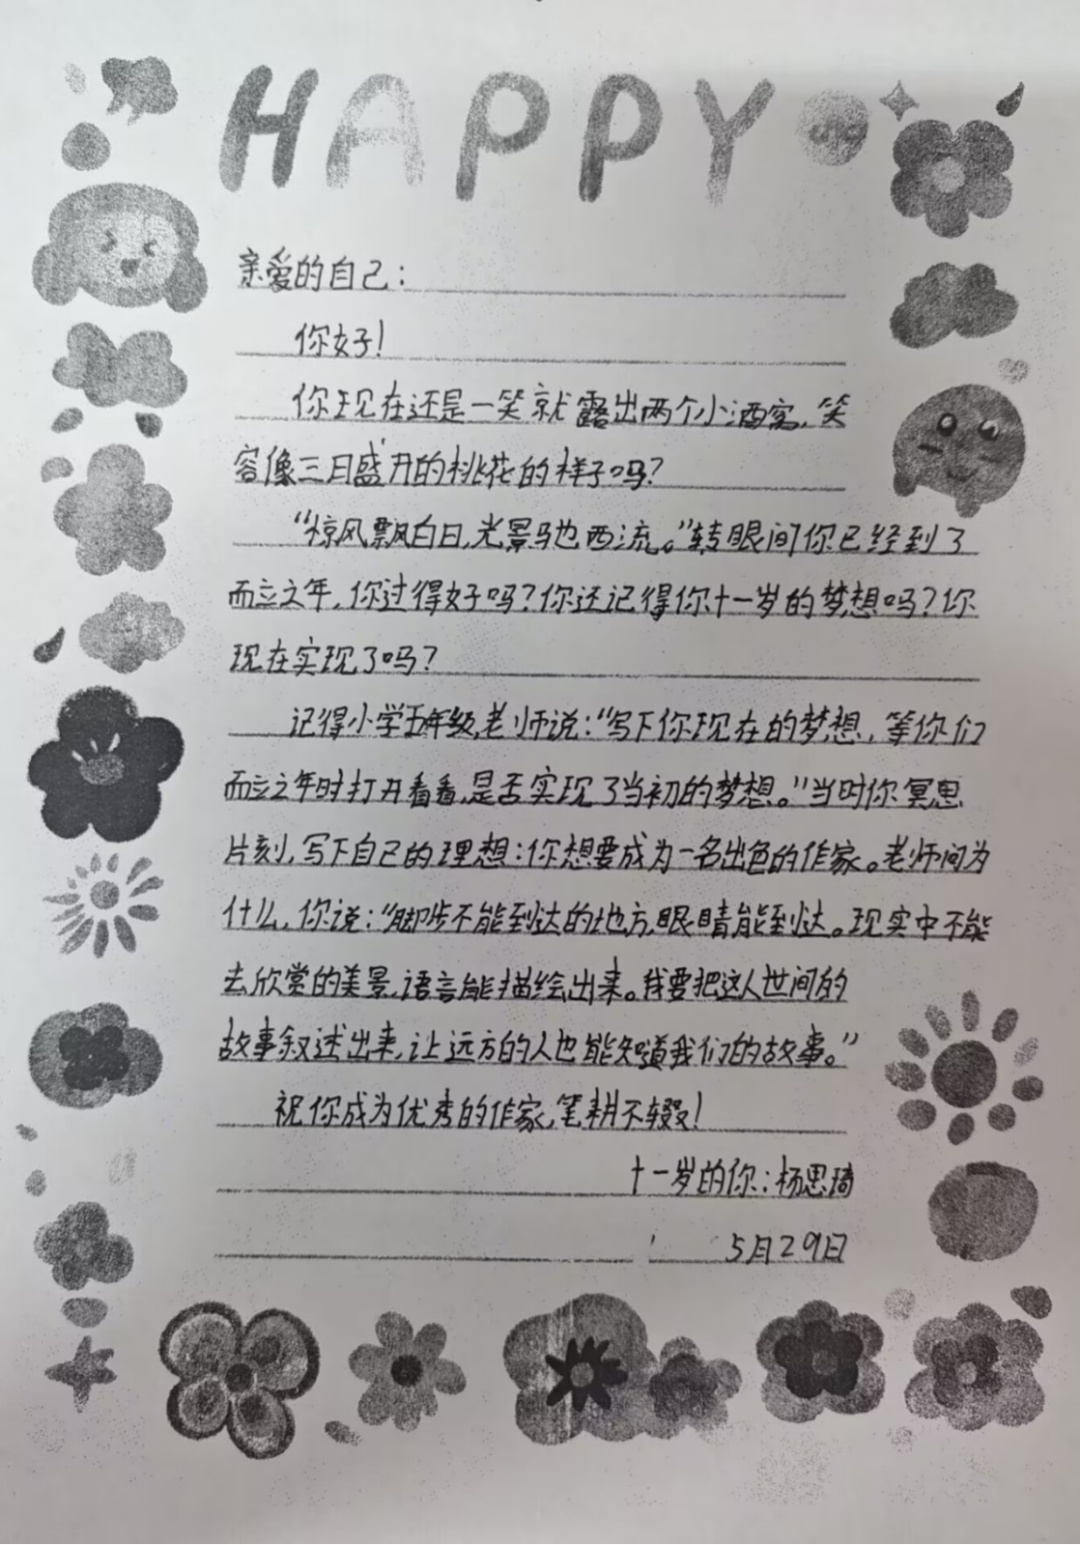 HAPPY
亲爱的自己：
你好！
你现在还是一笑就露出两个小酒窝，笑
容像三月盛开的桃花的样子吗？
“惊风飘白日，光景驰西流。”转眼间你已经到了
而立之年，你过得好吗？你还记得你十一岁的梦想吗？你
现在实现了吗？
记得小学五年级，老师说：“写下你现在的梦想，等你们
而立之年时打开看看，是否实现了当初的梦想。”当时你冥思
片刻，写下自己的理想：你想要成为一名出色的作家。老师问为
什么，你说：“脚步不能到达的地方，眼睛能到达。现实中不能
去欣赏的美景，语言能描绘出来。我要把这人世间的
故事叙述出来，让远方的人也能知道我们的故事。”
祝你成为优秀的作家，笔耕不辍！
十一岁的你：杨思琦
5月29日